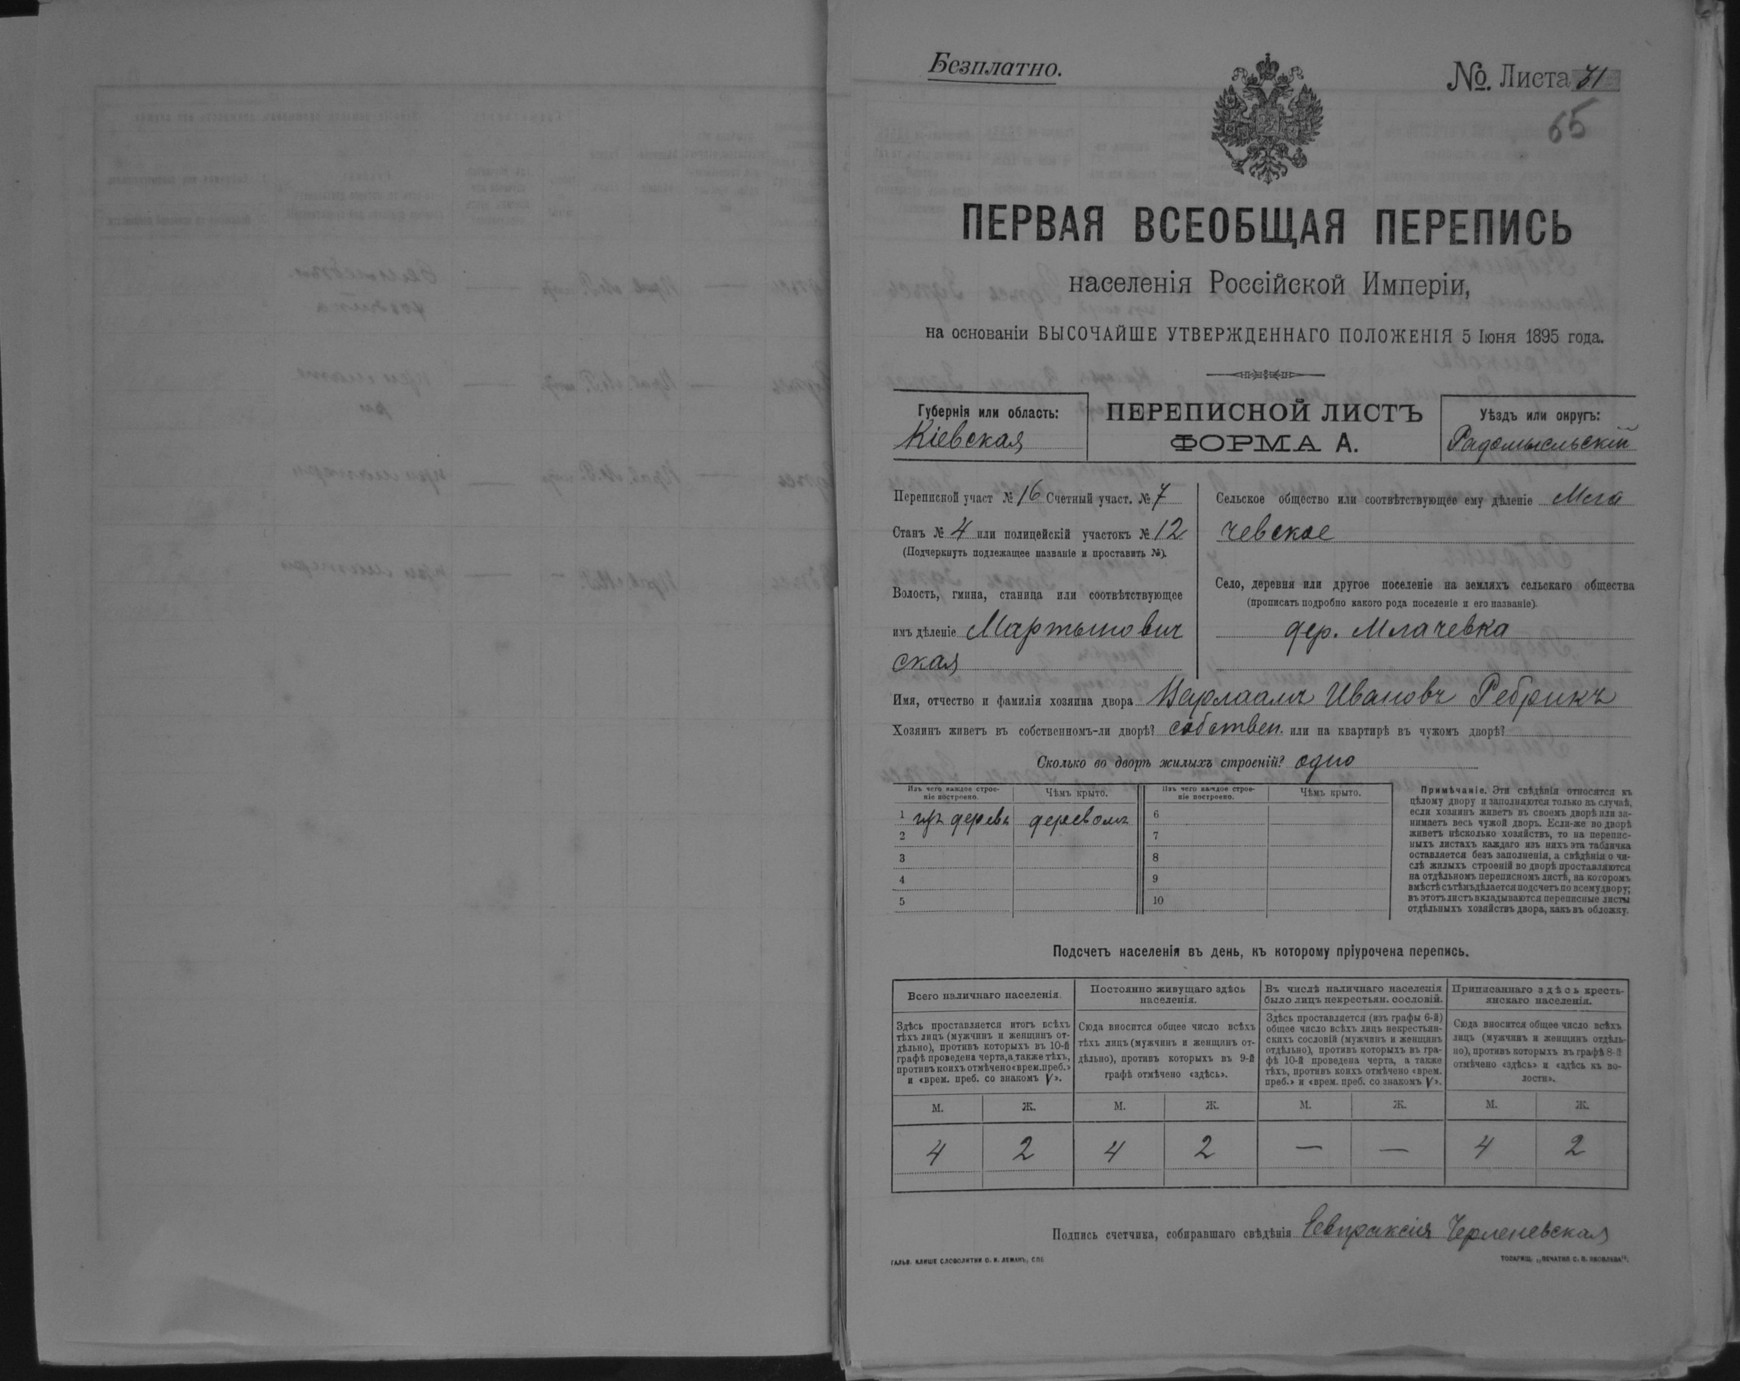 Безплатно.
№. Листа 31
65
ПЕРВАЯ ВСЕОБЩАЯ ПЕРЕПИСЬ
населенія Россійской Имперіи,
на основаніи ВЫСОЧАЙШЕ УТВЕРЖДЕННАГО ПОЛОЖЕНІЯ 5 Іюня 1895 года.
Губернія или область:
Кіевская
ПЕРЕПИСНОЙ ЛИСТЪ
ФОРМА А.
Уѣздъ или округъ:
Радомысльскій
Переписной участ № 16 Счетный участ. № 7
Станъ № 4 или полицейскій участокъ № 12
(Подчеркнуть подлежащее названіе и проставить №).
Волость, гмина, станица или соотвѣтствующее
имъ дѣленіе Мартынович
ская
Сельское общество или соотвѣтствующее ему дѣленіе Мла
чевское
Село, деревня или другое поселеніе на земляхъ сельскаго общества
(прописать подробно какого рода поселеніе и его названіе).
дер. Млачевка
Имя, отчество и фамилія хозяина двора Варлаамъ Ивановъ Ребрикъ
Хозяинъ живетъ въ собственномъ-ли дворѣ? собствен. или на квартирѣ въ чужомъ дворѣ?
Сколько во дворѣ жилыхъ строеній? одно
Изъ чего каждое строе-
ніе построено.
Чѣмъ крыто.
Изъ чего каждое строе-
ніе построено.
Чѣмъ крыто.
1 изъ дерева деревомъ
2
3
4
5
6
7
8
9
10
Примѣчаніе. Эти свѣдѣнія относятся къ
цѣлому двору и заполняются только въ случаѣ,
если хозяинъ живетъ въ своемъ дворѣ или за-
нимаетъ весь чужой дворъ. Если-же во дворѣ
живетъ нѣсколько хозяйствъ, то на перепис-
ныхъ листахъ каждаго изъ нихъ эта табличка
оставляется безъ заполненія, а свѣдѣнія о чи-
слѣ жилыхъ строеній во дворѣ проставляются
на отдѣльномъ переписномъ листѣ, на которомъ
вмѣстѣ съ тѣмъ дѣлается подсчетъ по всему двору;
въ этотъ листъ вкладываются переписные листы
отдѣльныхъ хозяйствъ двора, какъ въ обложку.
Подсчетъ населенія въ день, къ которому пріурочена перепись.
Всего наличнаго населенія.
Здѣсь проставляется итогъ всѣхъ
тѣхъ лицъ (мужчинъ и женщинъ от-
дѣльно), противъ которыхъ въ 10-й
графѣ проведена черта, а также тѣхъ,
противъ коихъ отмѣчено «врем. преб.»
и «врем. преб. со знакомъ V».
Постоянно живущаго здѣсь
населенія.
Сюда вносится общее число всѣхъ
тѣхъ лицъ (мужчинъ и женщинъ от-
дѣльно), противъ которыхъ въ 9-й
графѣ отмѣчено «здѣсь».
Въ числѣ наличнаго населенія
было лицъ некрестьян. сословій.
Здѣсь проставляется (изъ графы 6-й)
общее число всѣхъ лицъ некрестьян-
скихъ сословій (мужчинъ и женщинъ
отдѣльно), противъ которыхъ въ гра-
фѣ 10-й проведена черта, а также
тѣхъ, противъ коихъ отмѣчено «врем.
преб.» и «врем. преб. со знакомъ V».
Приписаннаго здѣсь кресть-
янскаго населенія.
Сюда вносится общее число всѣхъ
лицъ (мужчинъ и женщинъ отдѣль-
но), противъ которыхъ въ графѣ 8-й
отмѣчено «здѣсь» и «здѣсь къ во-
лости».
М. Ж. М. Ж. М. Ж. М. Ж.
4 2 4 2 — — 4 2
Подпись счетчика, собиравшаго свѣдѣнія Евпраксія Черленевская
ГАЛЬВ. КЛИШЕ СЛОВОЛИТНИ О. И. ЛЕМАНЪ, СПб.
ТОВАРИЩ. „ПЕЧАТНЯ С. П. ЯКОВЛЕВА".